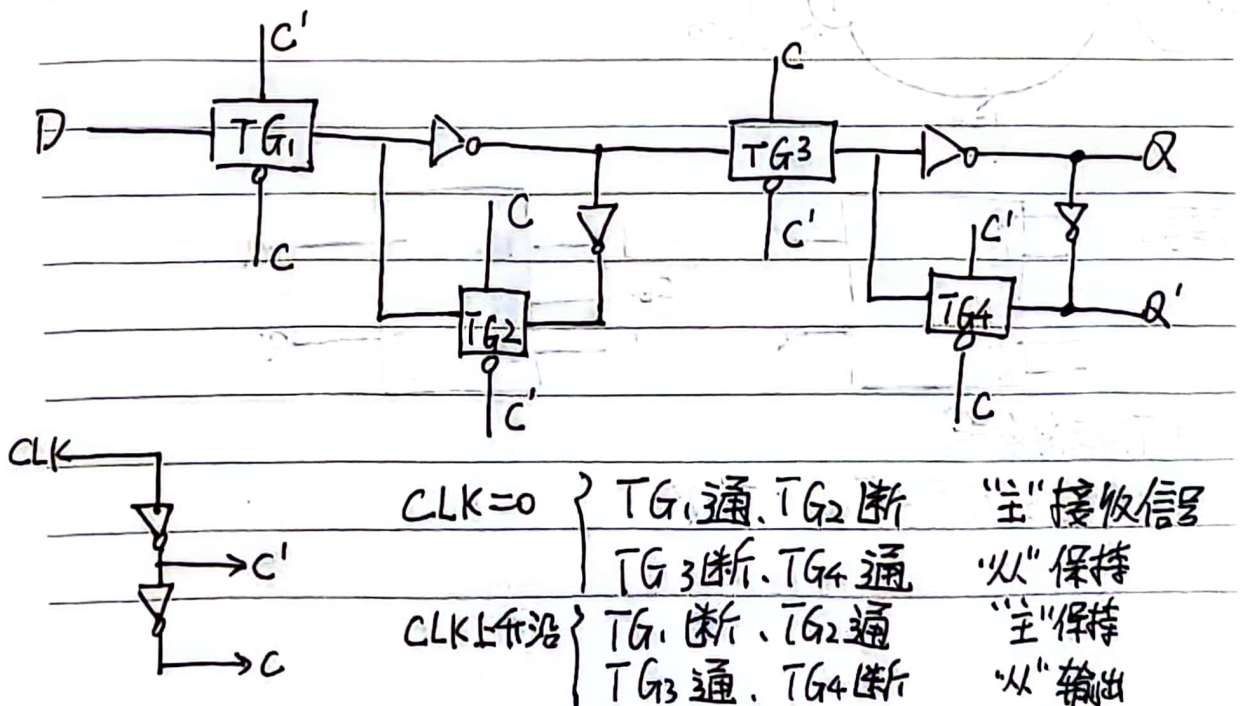 C'
C
D
TG1
TG3
Q
C
C
C'
C'
TG2
TG4
Q'
C'
C
CLK
C'
C
CLK=0 { TG1通、TG2断 "主"接收信号
TG3断、TG4通 "从"保持
CLK上升沿 { TG1断、TG2通 "主"保持
TG3通、TG4断 "从"输出